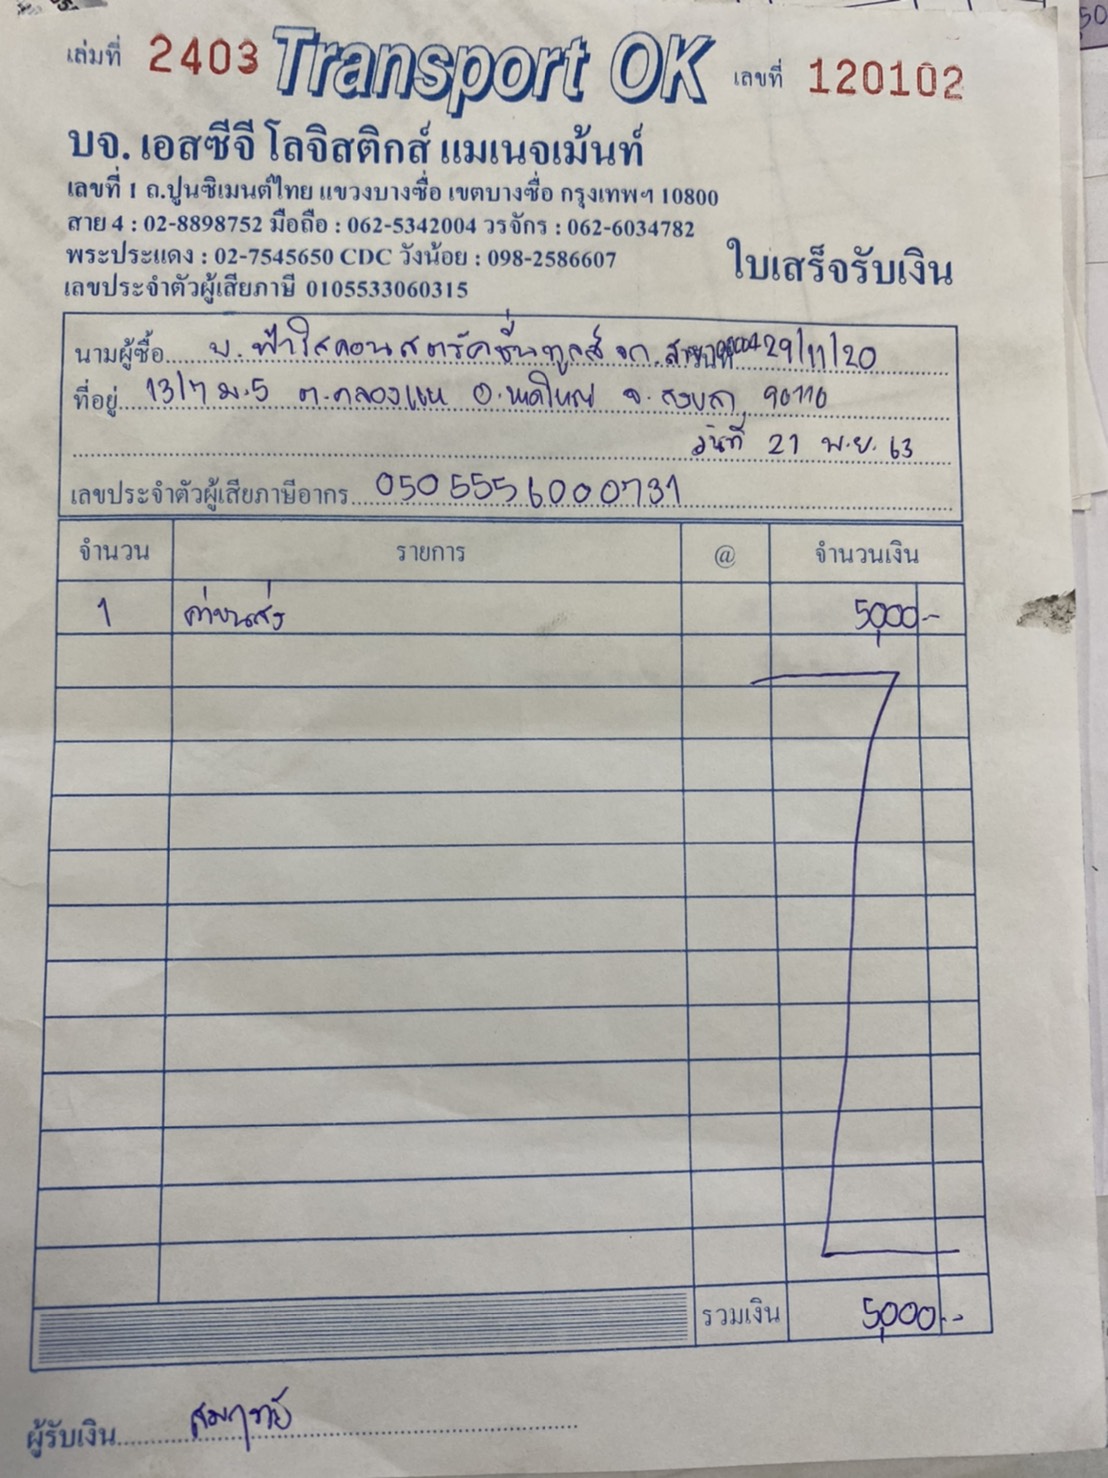 เล่มที่ 2403 Transport OK เลขที่ 120102
บจ. เอสซีจี โลจิสติกส์ แมเนจเม้นท์
เลขที่ 1 ถ.ปูนซิเมนต์ไทย แขวงบางซื่อ เขตบางซื่อ กรุงเทพฯ 10800
สาย 4 : 02-8898752 มือถือ : 062-5342004 วรจักร : 062-6034782
พระประแดง : 02-7545650 CDC วังน้อย : 098-2586607
ใบเสร็จรับเงิน
เลขประจำตัวผู้เสียภาษี 0105533060315
นามผู้ซื้อ บ. ฟ้าใสคอนสตรัคชั่นทูลส์ จก. 29/11/20
ที่อยู่ 13/7 ม.5 ต.คลองแห อ.หาดใหญ่ จ.สงขลา 90110
วันที่ 21 พ.ย. 63
เลขประจำตัวผู้เสียภาษีอากร 0505556000731
จำนวน รายการ @ จำนวนเงิน
1 ค่าขนส่ง 5,000.-
รวมเงิน 5,000.-
ผู้รับเงิน